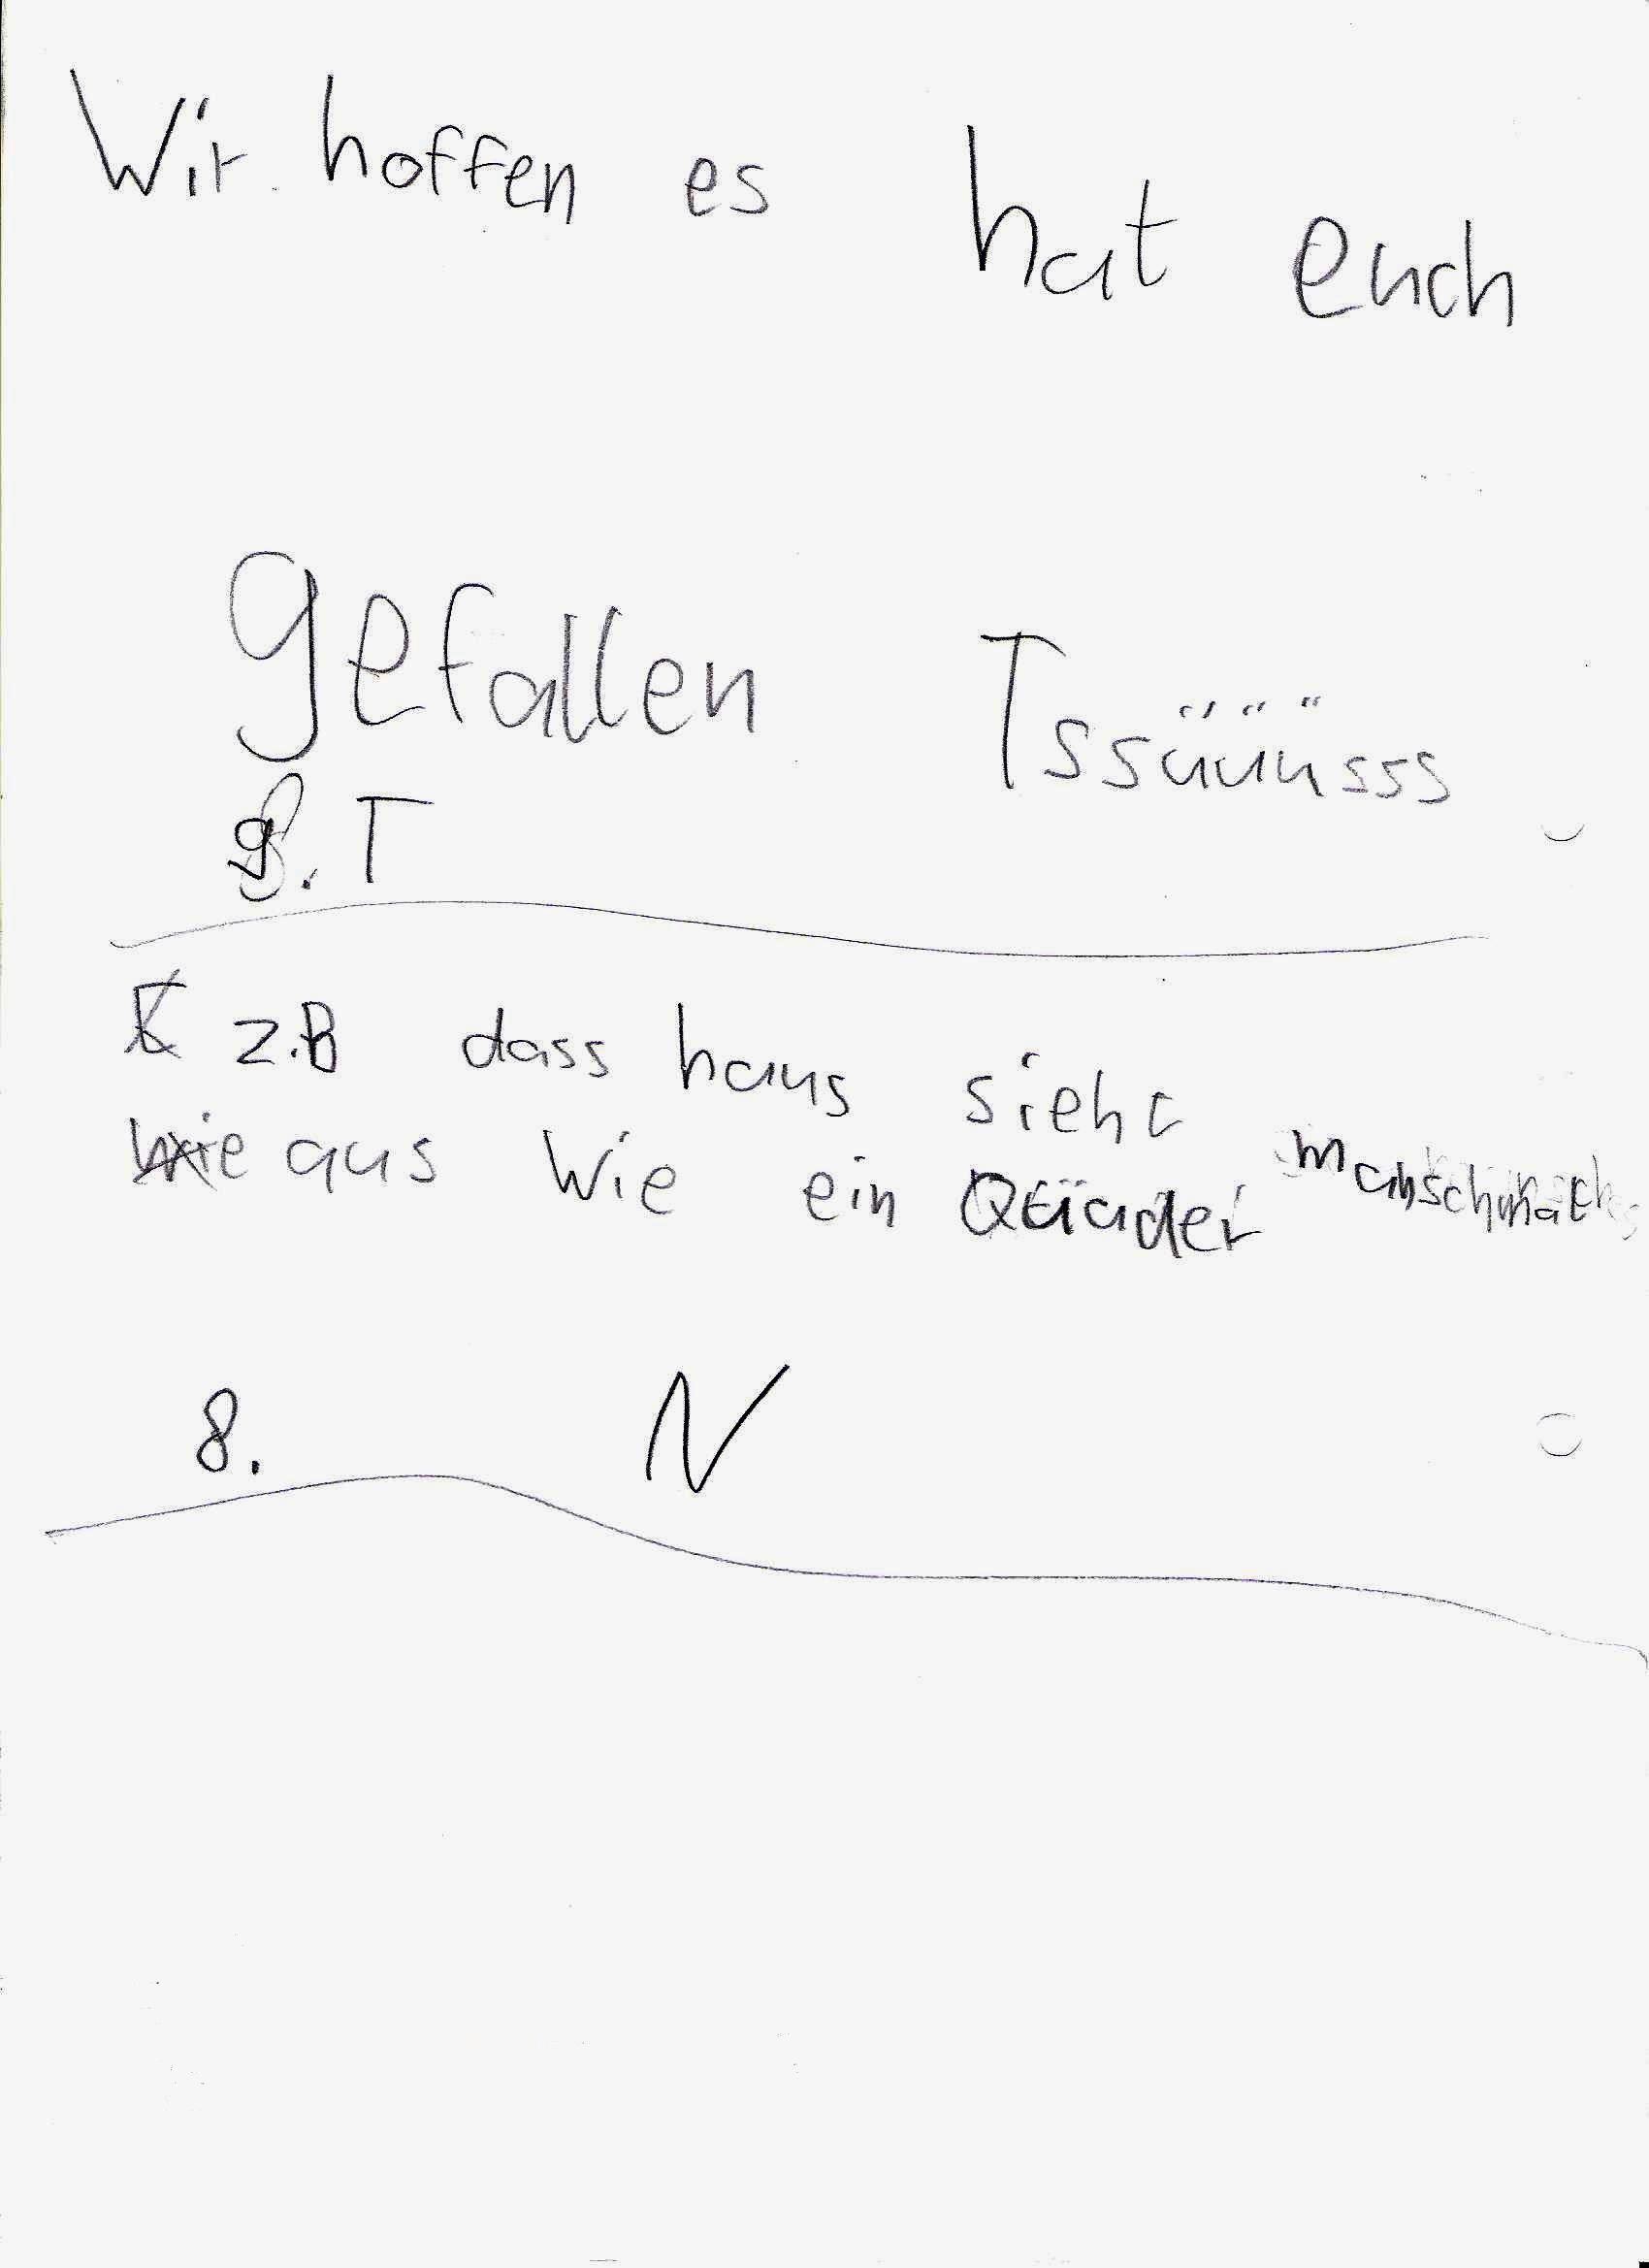 Wir hoffen es hat euch
gefallen Tssüüüsss
9. T
z.B dass haus sieht
aus wie ein Quader manschmal
8. N